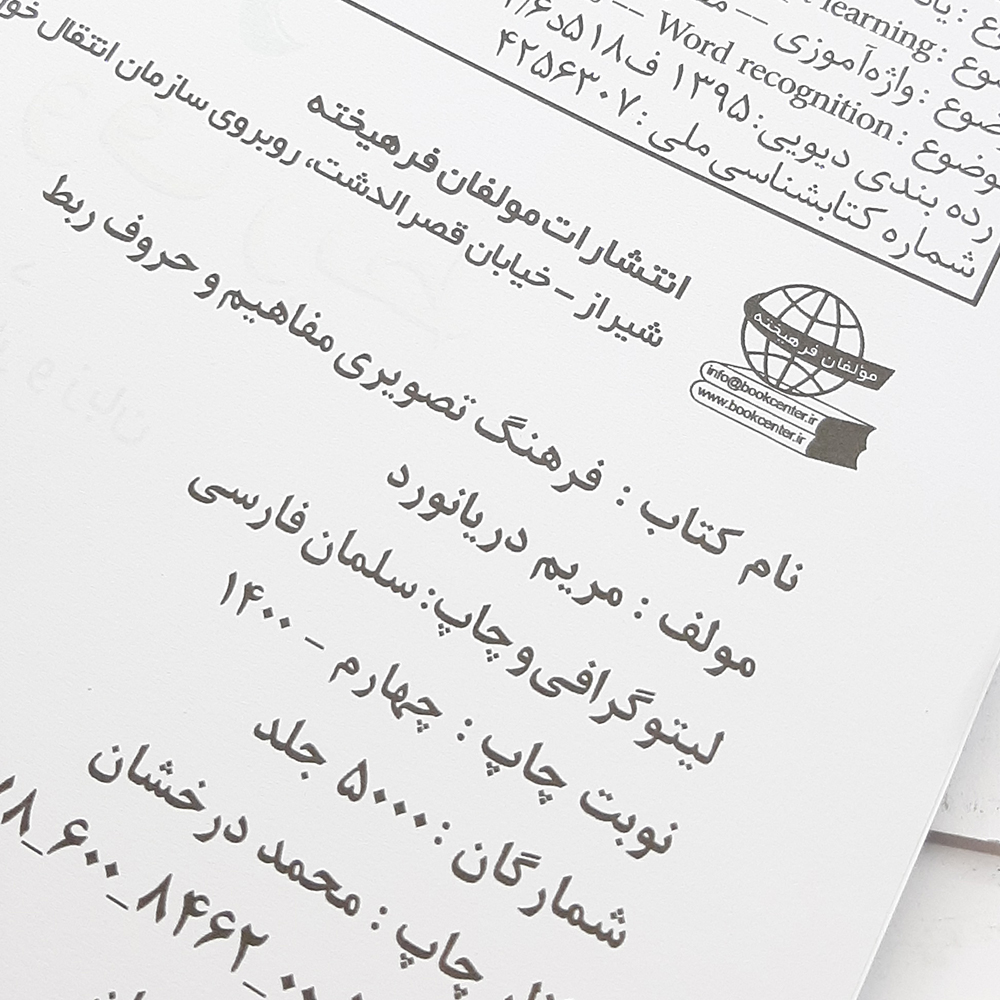 learning
موضوع : واژه‌آموزی --
موضوع : Word recognition --
رده بندی دیویی: ۱۳۹۵
شماره کتابشناسی ملی : ۴۲۵۶۳۰۷
انتشارات مولفان فرهیخته
شیراز - خیابان قصرالدشت، روبروی سازمان انتقال
مؤلفان فرهیخته
info@bookcenter.ir
www.bookcenter.ir
نام کتاب : فرهنگ تصویری مفاهیم و حروف ربط
مولف : مریم دریانورد
لیتوگرافی و چاپ: سلمان فارسی
نوبت چاپ : چهارم - ۱۴۰۰
شمارگان : ۵۰۰۰ جلد
چاپ : محمد درخشان
۶۰۰_۸۴۶۲_